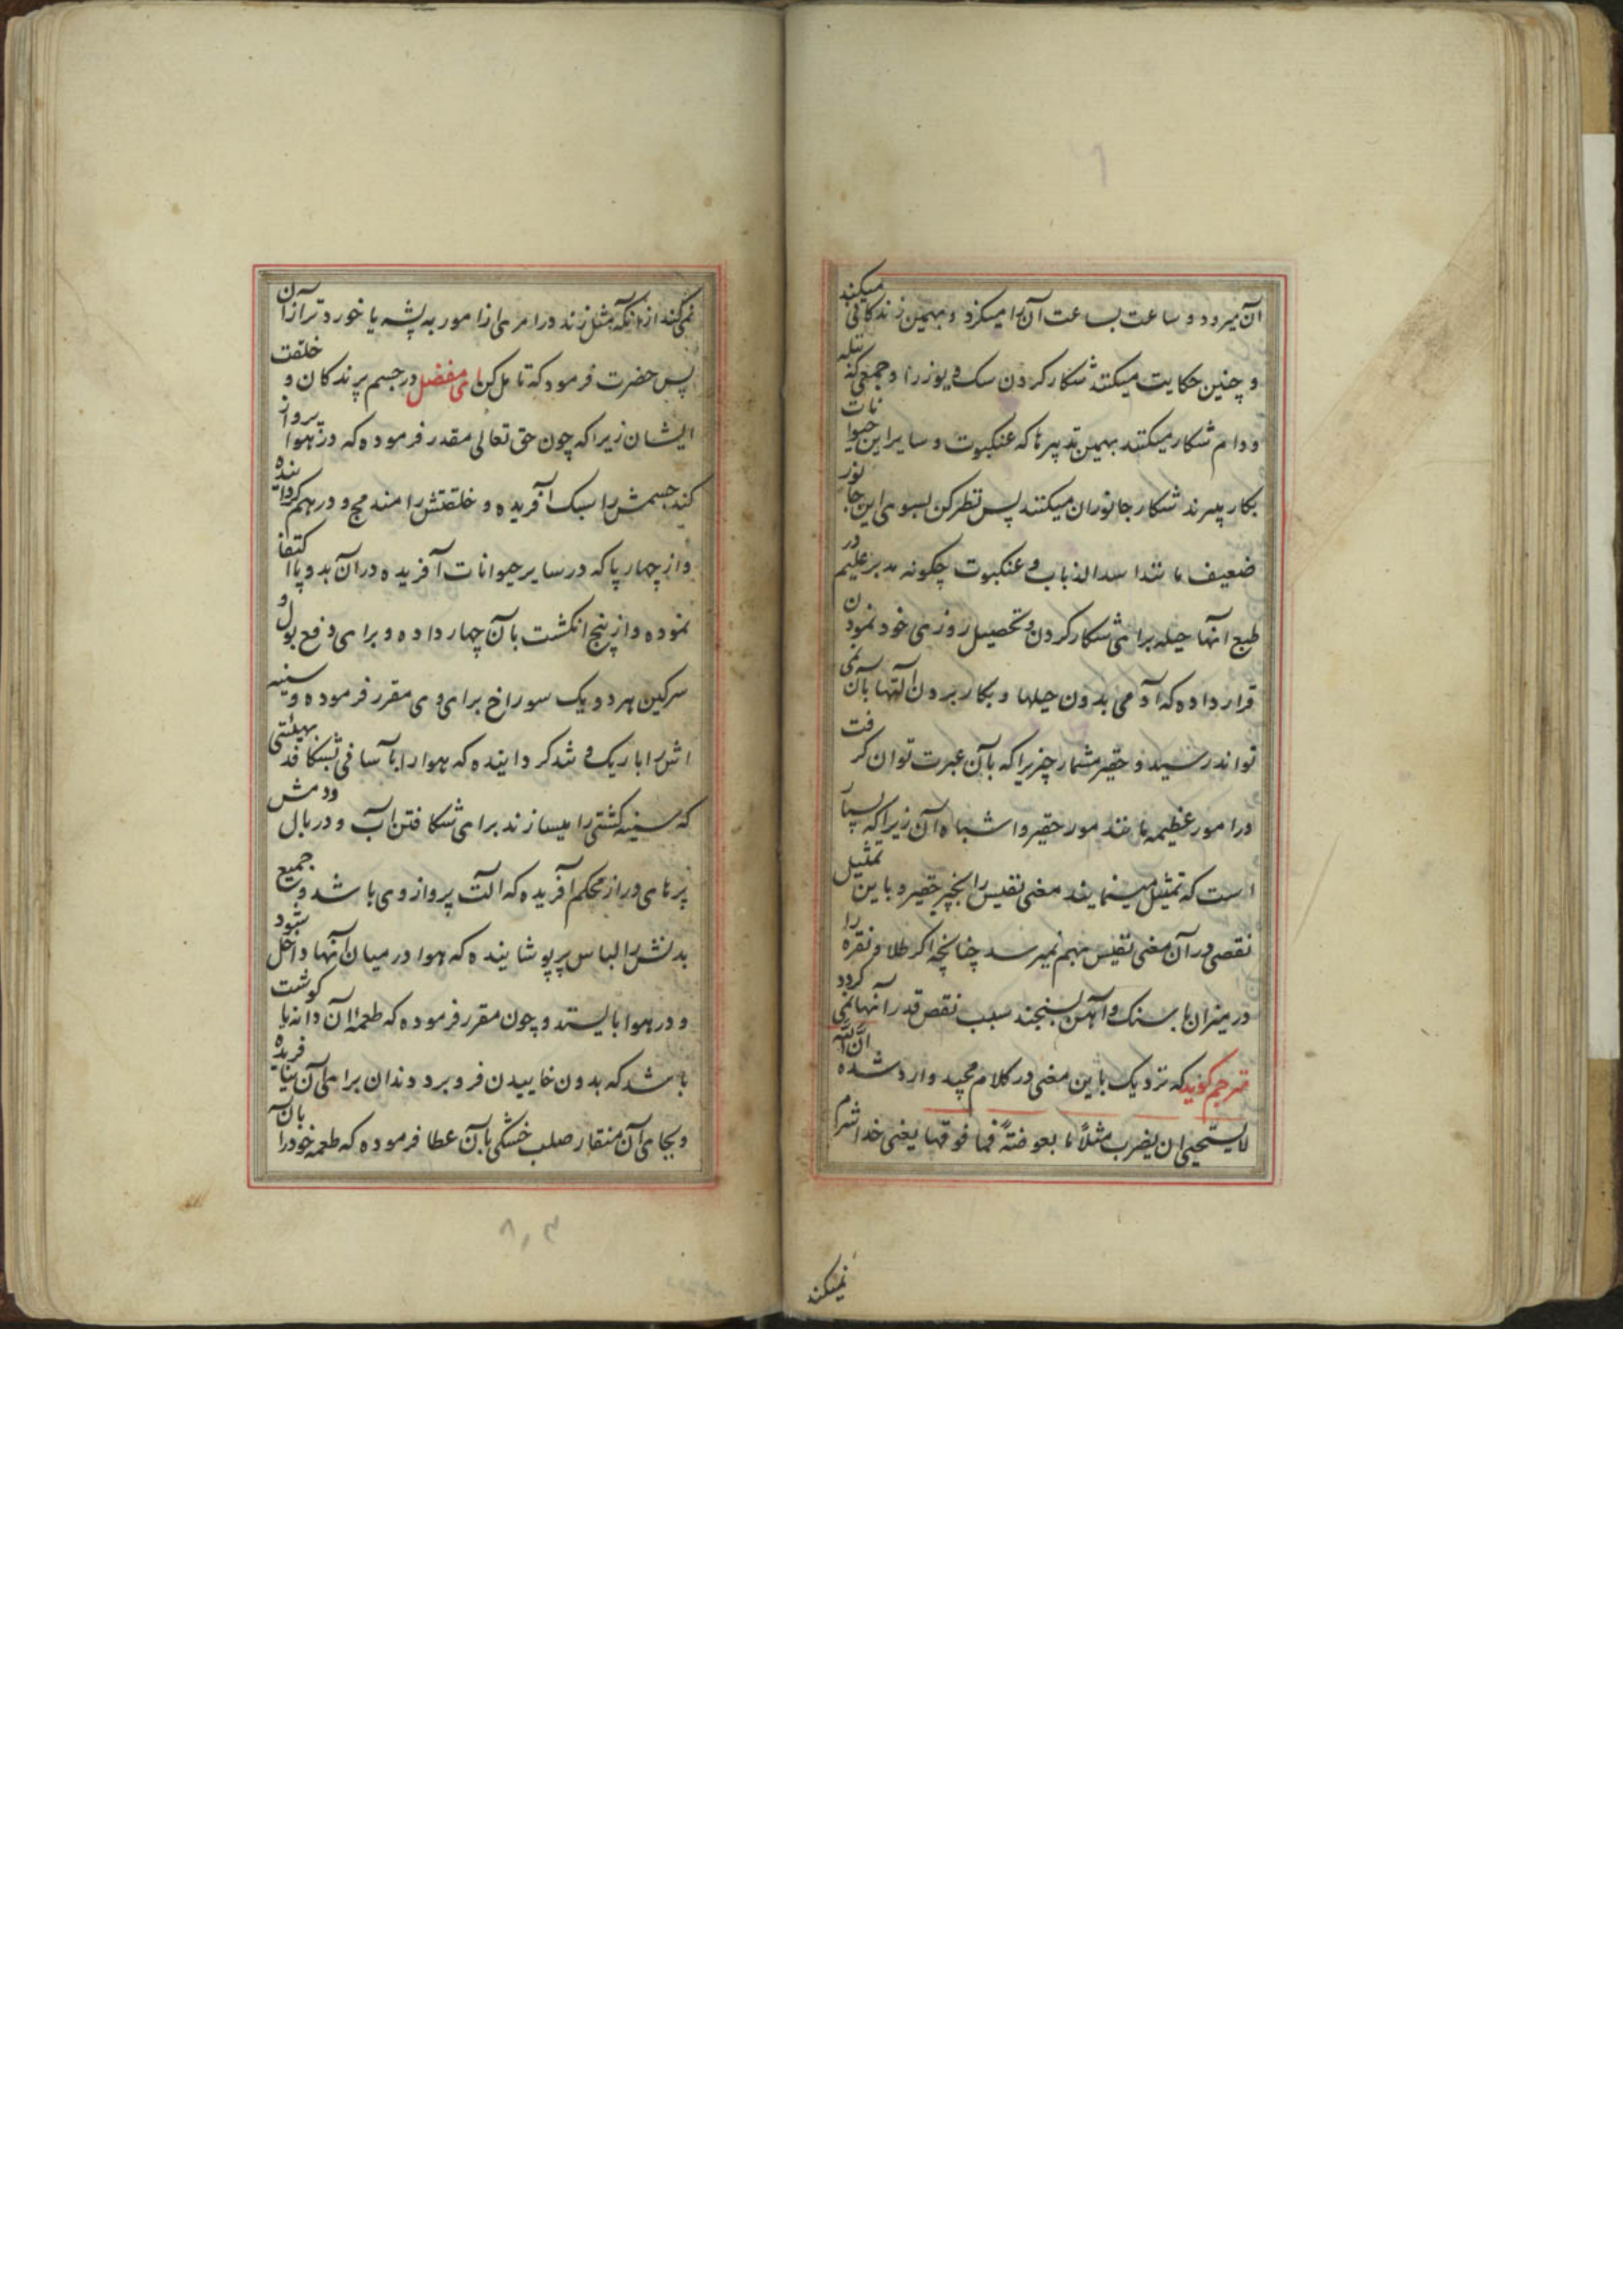 آن میرود و ساعت بساعت آن را میگزد و بهمین زندکانی میکند
و چنین حکایت میکنند شکار کردن سک و یوز را و جمعی که بتله
و دام شکار میکنند بهمین تدبیرها که عنکبوت و سایر این حیوانات
بکار میبرند شکار جانوران میکنند پس نظر کن بسوی این جانور
ضعیف مانند اسد الذباب و عنکبوت چکونه مدبر علیم در
طبع انها حیله برای شکار کردن و تحصیل روزی خود نمودن
قرار داده که آدمی بدون حیلها و بکار بردن آلتها بآن نمی
تواند رسید و حقیر مشمار چیزیرا که بآن عبرت توان کرفت
در امور عظیمه مانند مور حقیر و اشباه آن زیرا که بسیار
است که تمثیل مینمایند معنی نفیس را بچیز حقیر و باین تمثیل
نقصی در آن معنی نفیس بهم نمیرسد چنانچه اکر طلا و نقره را
در میزان با سنک و آهن بسنجند سبب نقص قدر آنها نمی کردد
مترجم کوید که نزدیک باین معنی در کلام مجید وارد شده انّ اللّه
لا یستحیی ان یضرب مثلاً ما بعوضةً فما فوقها یعنی خدا شرم
نمیکند
نمی کند از آنکه مثل زند در امری از امور به پشه یا خوردتر از آن
پس حضرت فرمود که تامل کن ای مفضل در جسم پرندکان و خلقت
ایشان زیرا که چون حق تعالی مقدر فرموده که در هوا پرواز
کند جسمش را سبک آفریده و خلقتش را مندمج و درهم کردانیده
و از چهار پا که در سایر حیوانات آفریده در آن بدو پا اکتفا
نموده و از پنج انکشت بآن چهار داده و برای دفع بول و
سرکین هر دو یک سوراخ برای وی مقرر فرموده و سینه
اش را باریک و تند کردانیده که هوا را بآسانی بشکافد بهیئتی
که سینه کشتی را میسازند برای شکافتن آب و در بال و دمش
پرهای دراز محکم آفریده که آلت پرواز وی باشد و جمیع
بدنش را لباس پر پوشانیده که هوا در میان آنها داخل شود
و در هوا بایستد و چون مقرر فرموده که طعمه آن دانه یا کوشت
باشد که بدون خاییدن فرو برد دندان برای آن نیافریده
و بجای آن منقار صلب خشکی بآن عطا فرموده که طعمه خود را بآن